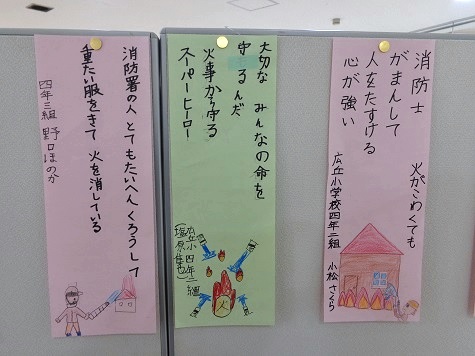 消防士 火がこわくても
がまんして
人をたすける
心が強い
広丘小学校四年二組 小松さくら
大切な みんなの命を
守るんだ
火事から守る
スーパーヒーロー
広丘小 四年二組
塩原
火
消防署の人 とてもたいへん くろうして
重たい服をきて 火を消している
四年三組 野口ほのか